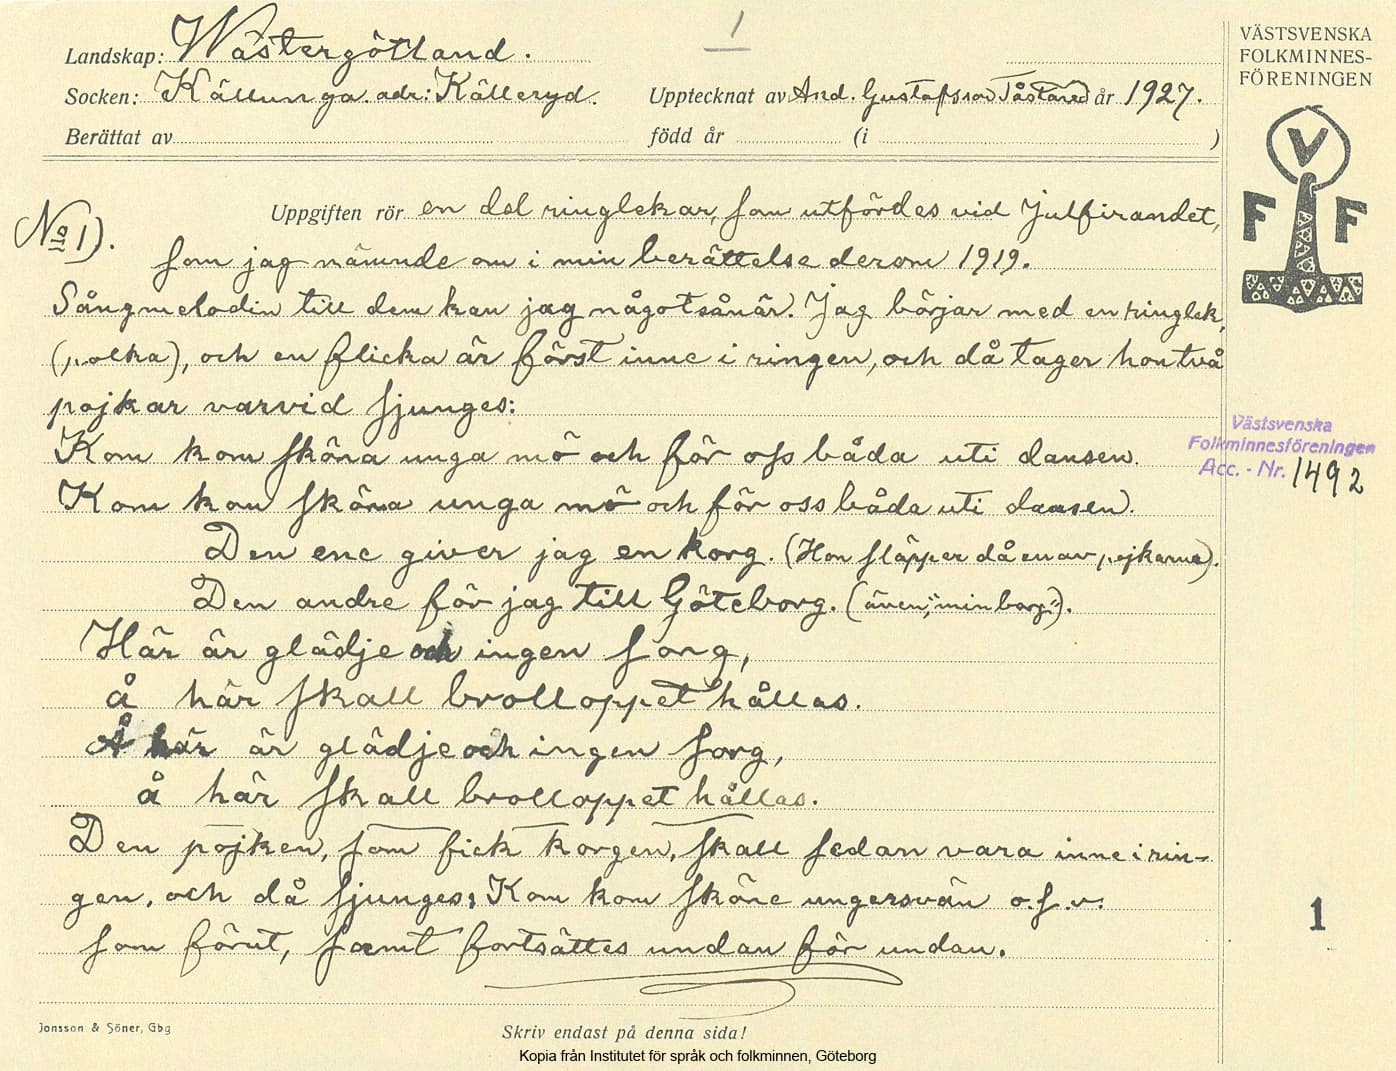 1
Landskap: Wästergötland.
Socken: Källunga. adr: Källeryd. Upptecknat av And. Gustafsson Tåstared år 1927.
Berättat av född år (i )
VÄSTSVENSKA
FOLKMINNES-
FÖRENINGEN
V
F F
No 1). Uppgiften rör en del ringlekar, som utfördes vid Julfirandet,
som jag nämnde om i min berättelse derom 1919.
Sångmelodin till dem kan jag någotsånär. Jag börjar med en ringlek,
(polka), och en flicka är först inne i ringen, och då tager hon två
pojkar varvid sjunges:
Kom kom sköna unga mö och för oss båda uti dansen.
Kom kom sköna unga mö och för oss båda uti dansen.
Den ene giver jag en korg. (Hon släpper då en av pojkarne).
Den andre för jag till Göteborg. (även; "min borg").
Här är glädje och ingen sorg,
å här skall brolloppet hållas.
Å här är glädje och ingen sorg,
å här skall brolloppet hållas.
Den pojken, som fick korgen, skall sedan vara inne i rin-
gen, och då sjunges; Kom kom sköne ungersvän o.s.v.
som förut, samt fortsättes undan för undan.
Västsvenska
Folkminnesföreningen
Acc. - Nr. 1492
1
Jonsson & Söner, Gbg
Skriv endast på denna sida!
Kopia från Institutet för språk och folkminnen, Göteborg